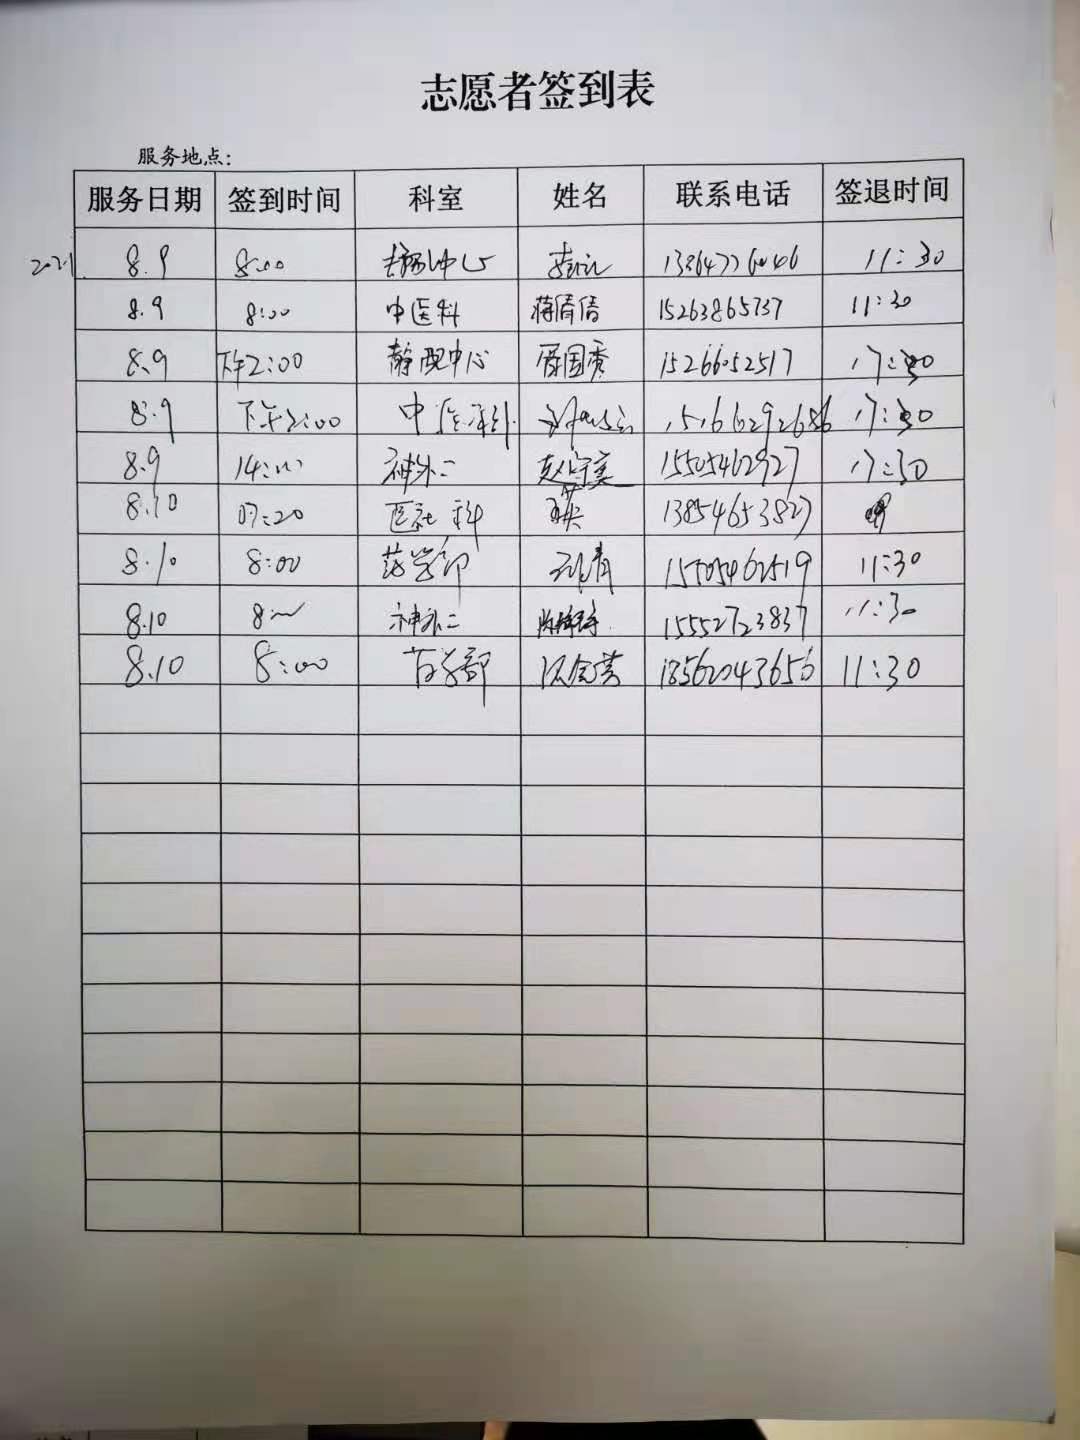 志愿者签到表
服务地点：
服务日期 签到时间 科室 姓名 联系电话 签退时间
2021 8.9 8:00 中心 11:30
8.9 8:00 中医科 蒋倩倩 15263865737 11:30
8.9 下午2:00 静配中心 国秀 15266052517 17:30
8.9 下午2:00 15166292686 17:30
8.9 14:00 神外二 赵守美 15505462927 17:30
8.10 07:20 医社科 13854653827
8.10 8:00 药学部 青 15505462519 11:30
8.10 8:00 神外二 15552723837 11:30
8.10 8:00 药学部 18562043656 11:30